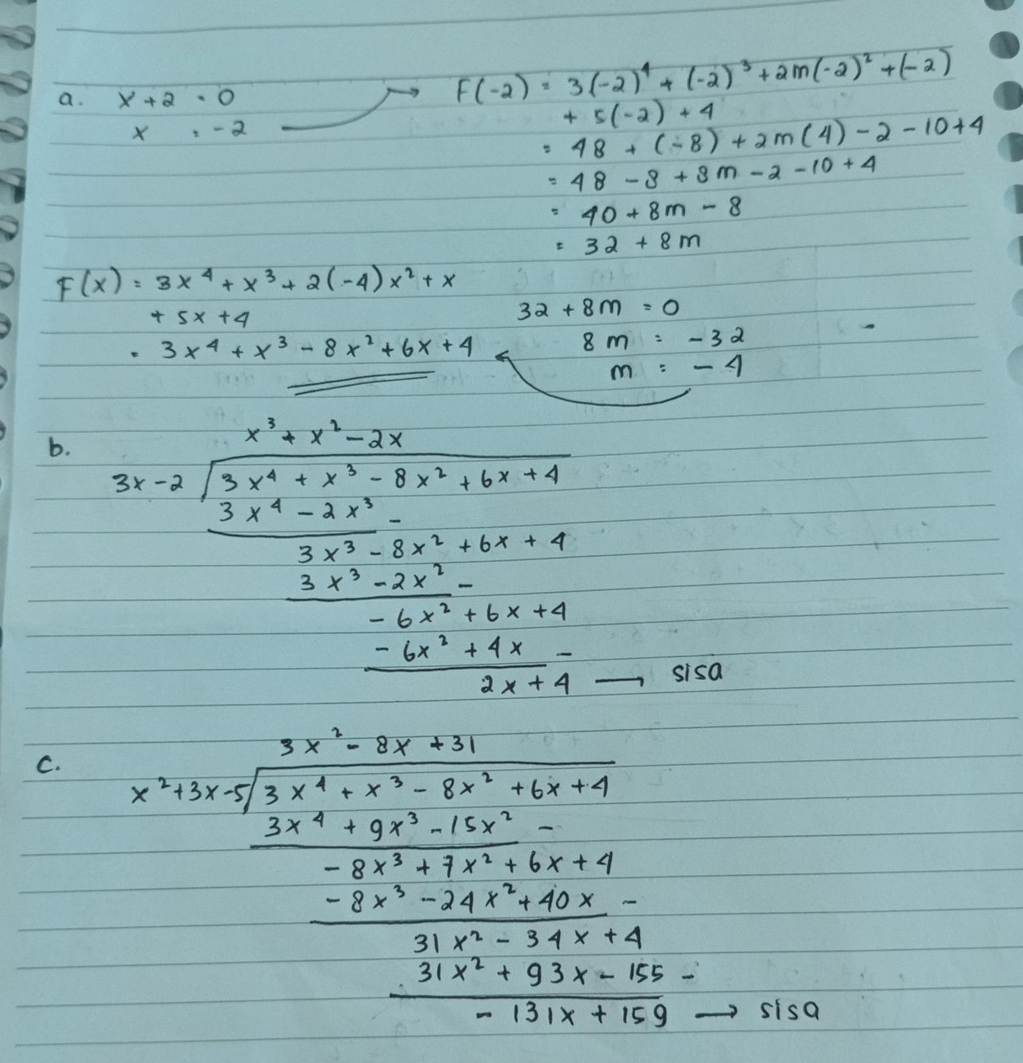 a. x + 2 = 0
x = -2 → F(-2) = 3(-2)⁴ + (-2)³ + 2m(-2)² + (-2)
+ 5(-2) + 4
= 48 + (-8) + 2m(4) - 2 - 10 + 4
= 48 - 8 + 8m - 2 - 10 + 4
= 40 + 8m - 8
= 32 + 8m
F(x) = 3x⁴ + x³ + 2(-4)x² + x
+ 5x + 4
= 3x⁴ + x³ - 8x² + 6x + 4
32 + 8m = 0
8m = -32
m = -4
b.
x³ + x² - 2x
3x - 2 / 3x⁴ + x³ - 8x² + 6x + 4
3x⁴ - 2x³ -
3x³ - 8x² + 6x + 4
3x³ - 2x² -
- 6x² + 6x + 4
- 6x² + 4x -
2x + 4 → sisa
c.
3x² - 8x + 31
x² + 3x - 5 / 3x⁴ + x³ - 8x² + 6x + 4
3x⁴ + 9x³ - 15x² -
- 8x³ + 7x² + 6x + 4
- 8x³ - 24x² + 40x -
31x² - 34x + 4
31x² + 93x - 155 -
- 131x + 159 → sisa